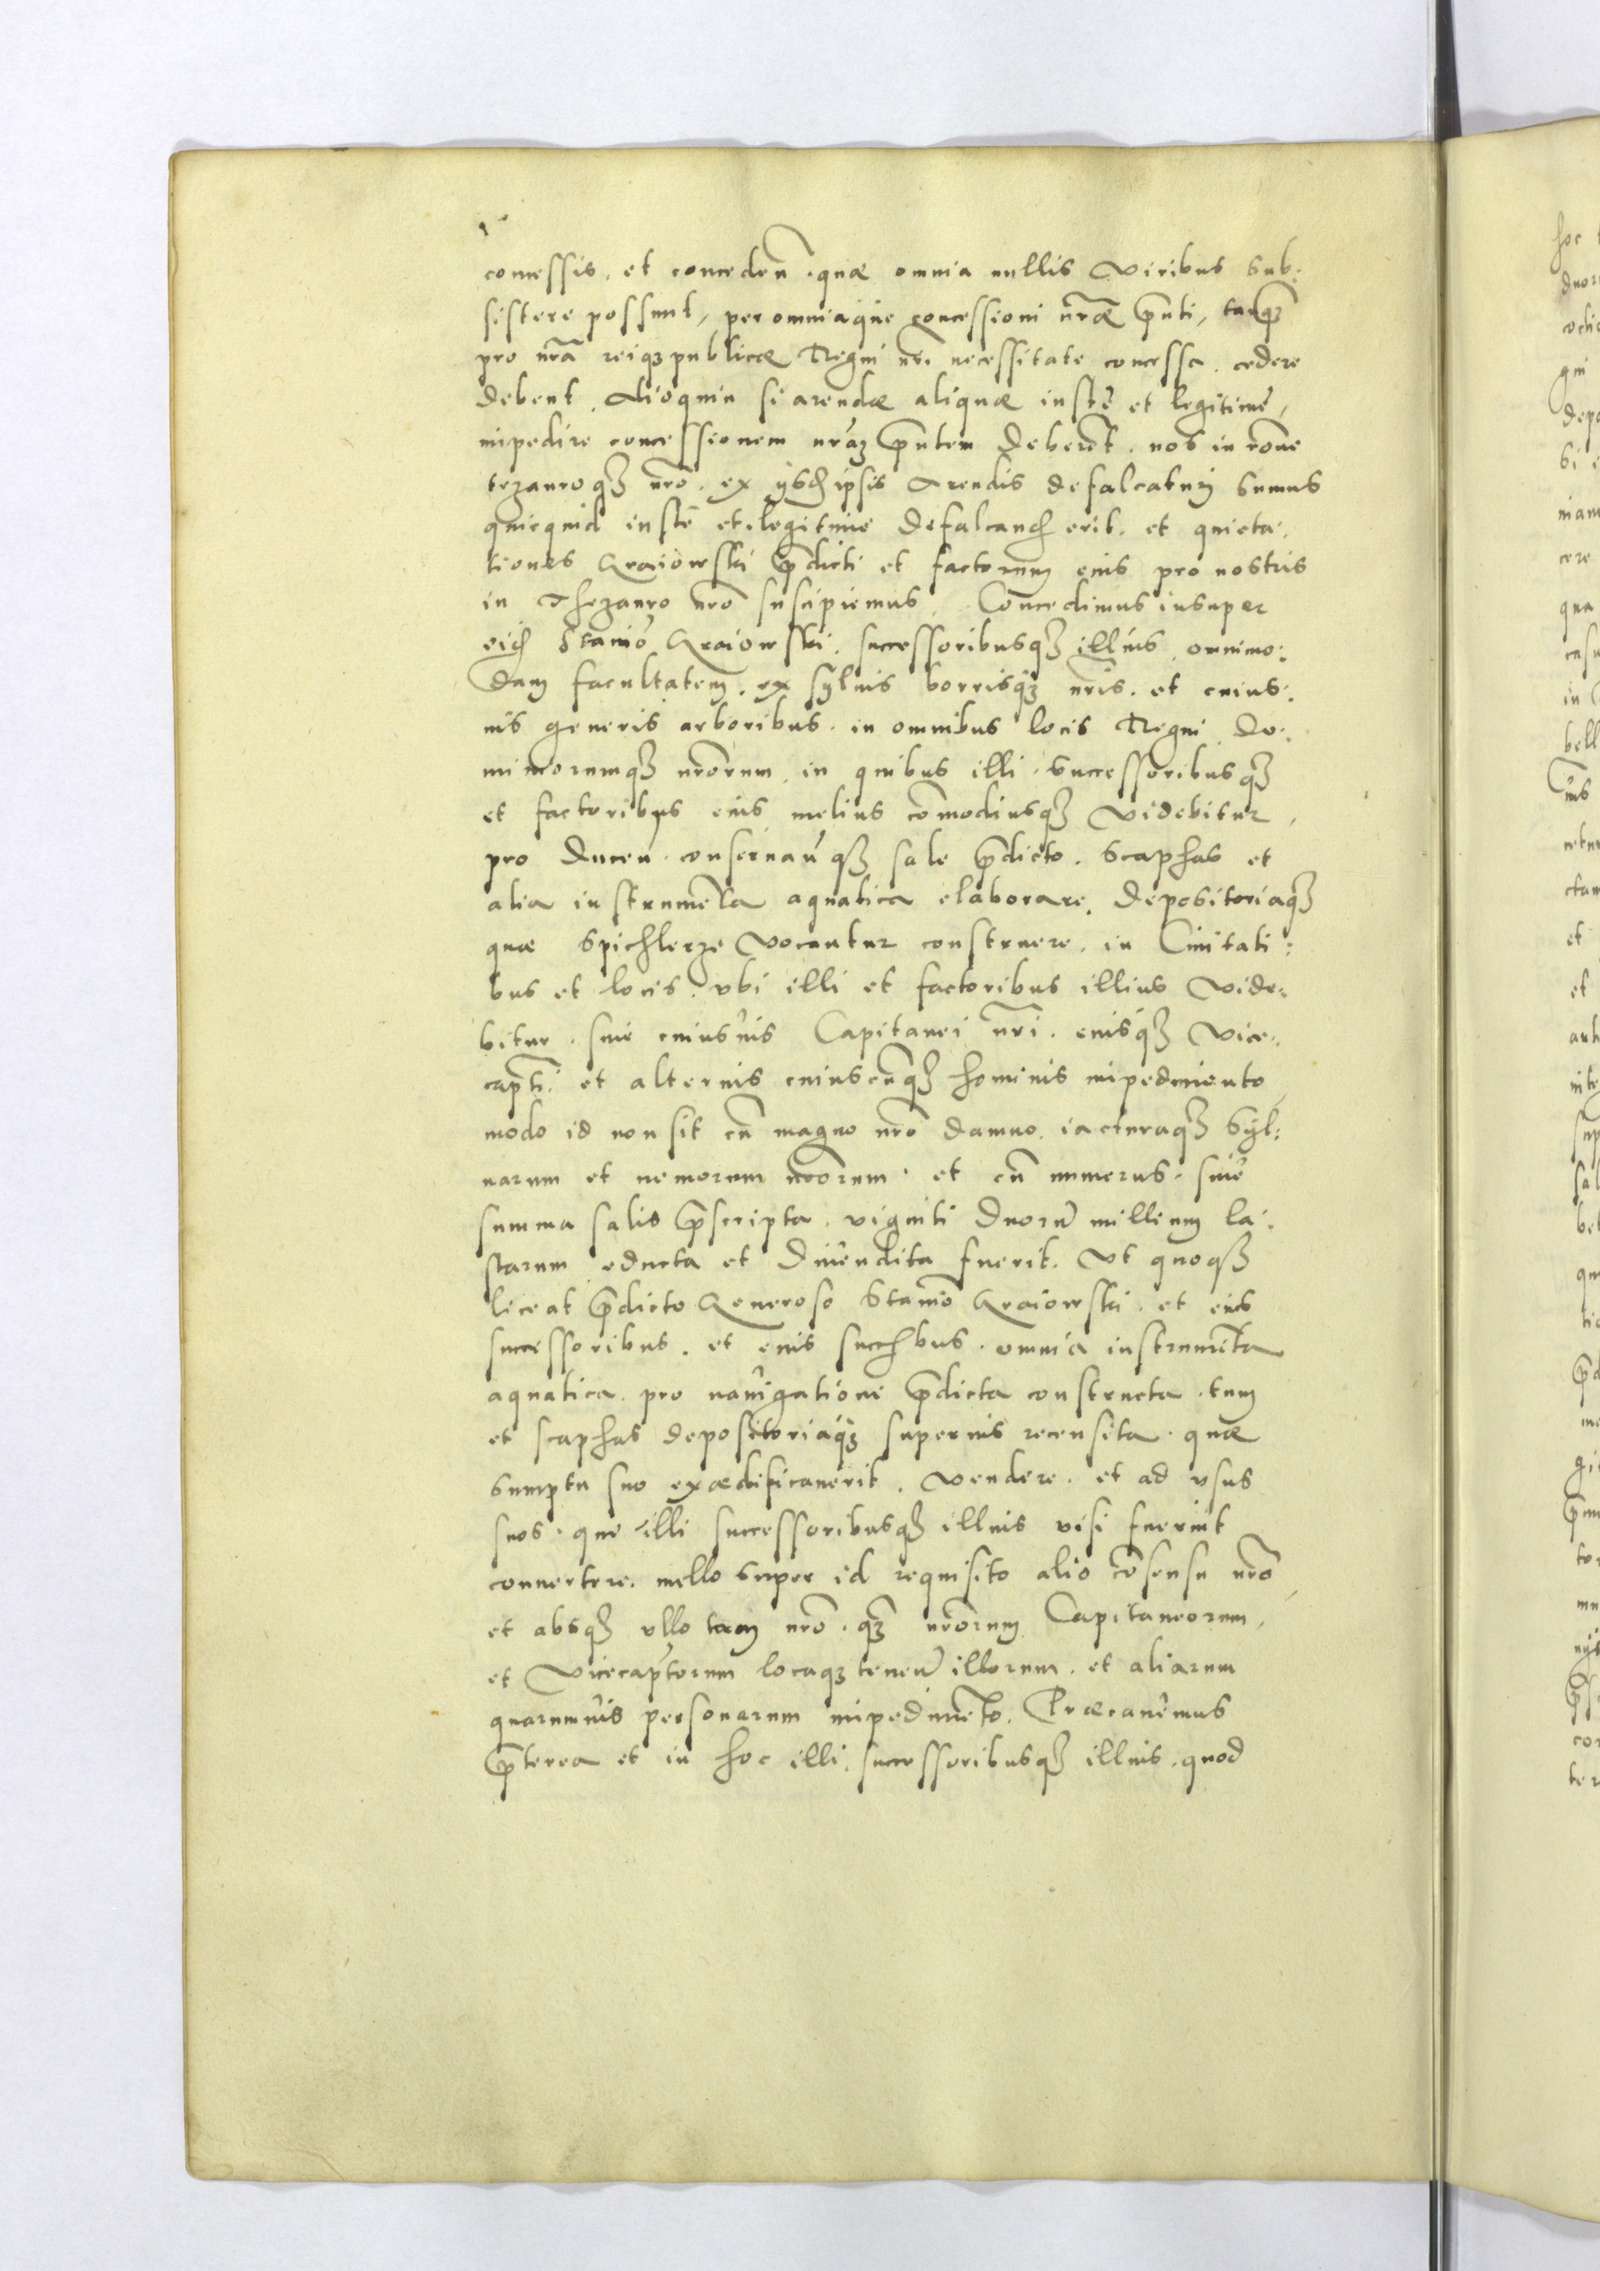 concessis, et conceden̄ . quæ omnia nullis viribus sub:
sistere possunt, per omniaque concessioni nr̄æ pn̄ti, tanq̄3
pro nr̄a reiq3 publicæ Regni nr̄i necessitate concessa . cedere
debent . Alioquin si arendæ aliquæ iustè et legitimè,
impedire concessionem nr̄am pn̄tem deberēt . nos in rōne
tezauroq3 nr̄o . ex ijsd ipsis Arendis defalcaturj sumus
quicquid iustè et legitimè defalcand erit . et quieta:
tiones Kraiowski p̄dicti et factorum eius pro nostris
in Thezauro nr̄o suscipiemus . Concedimus insuper
eid Stanio Kraiowski . successoribusq3 illius omnimo:
dam facultatem . ex syluis borrisq3 nr̄is . et cuius:
uis generis arboribus . in omnibus locis Regni Do:
miniorumq3 nr̄orum . in quibus illi successoribusq3
et factoribus eius melius cōmodiusq3 videbitur,
pro ducen . conseruan̄ q3 sale p̄dicto . scaphas et
alia instrumēta aquatica elaborare, depositoriaq3
quæ Spichlerze vocantur construere . in Ciuitati:
bus et locis . vbi illi et factoribus illius vide:
bitur . sine cuiusuis Capitanei nr̄i . eiusq3 vice:
capti . et alterius cuiuscunq3 hominis impedimento
modo id non sit cū magno nr̄o damno . iacturaq3 Syl:
uarum et nemorum nr̄orum . et cū numerus . siuè
summa salis p̄scripta . viginti duorū millium la:
starum educta et diuendita fuerit . Vt quoq3
liceat p̄dicto Generoso Stanio Kraiowski . et eius
successoribus . et eius succbus . omnia instrumēta
aquatica . pro nauigatione p̄dicta constructa . tum
et scaphas depositoriaq3 superius recensita . quæ
sumptu suo exædificauerit . vendere . et ad vsus
suos . que illi successoribusq3 illius visi fuerint
conuertere . nullo super id requisito alio cōsensu nr̄o
et absq3 vllo tam nr̄o . q3 nr̄orum Capitaneorum,
et Vicecaptorum locaq3 tenen̄ illorum . et aliarum
quarumuis personarum impedimēto . Præcauemus
p̄terea et in hoc illi . successoribusq3 illius . quod